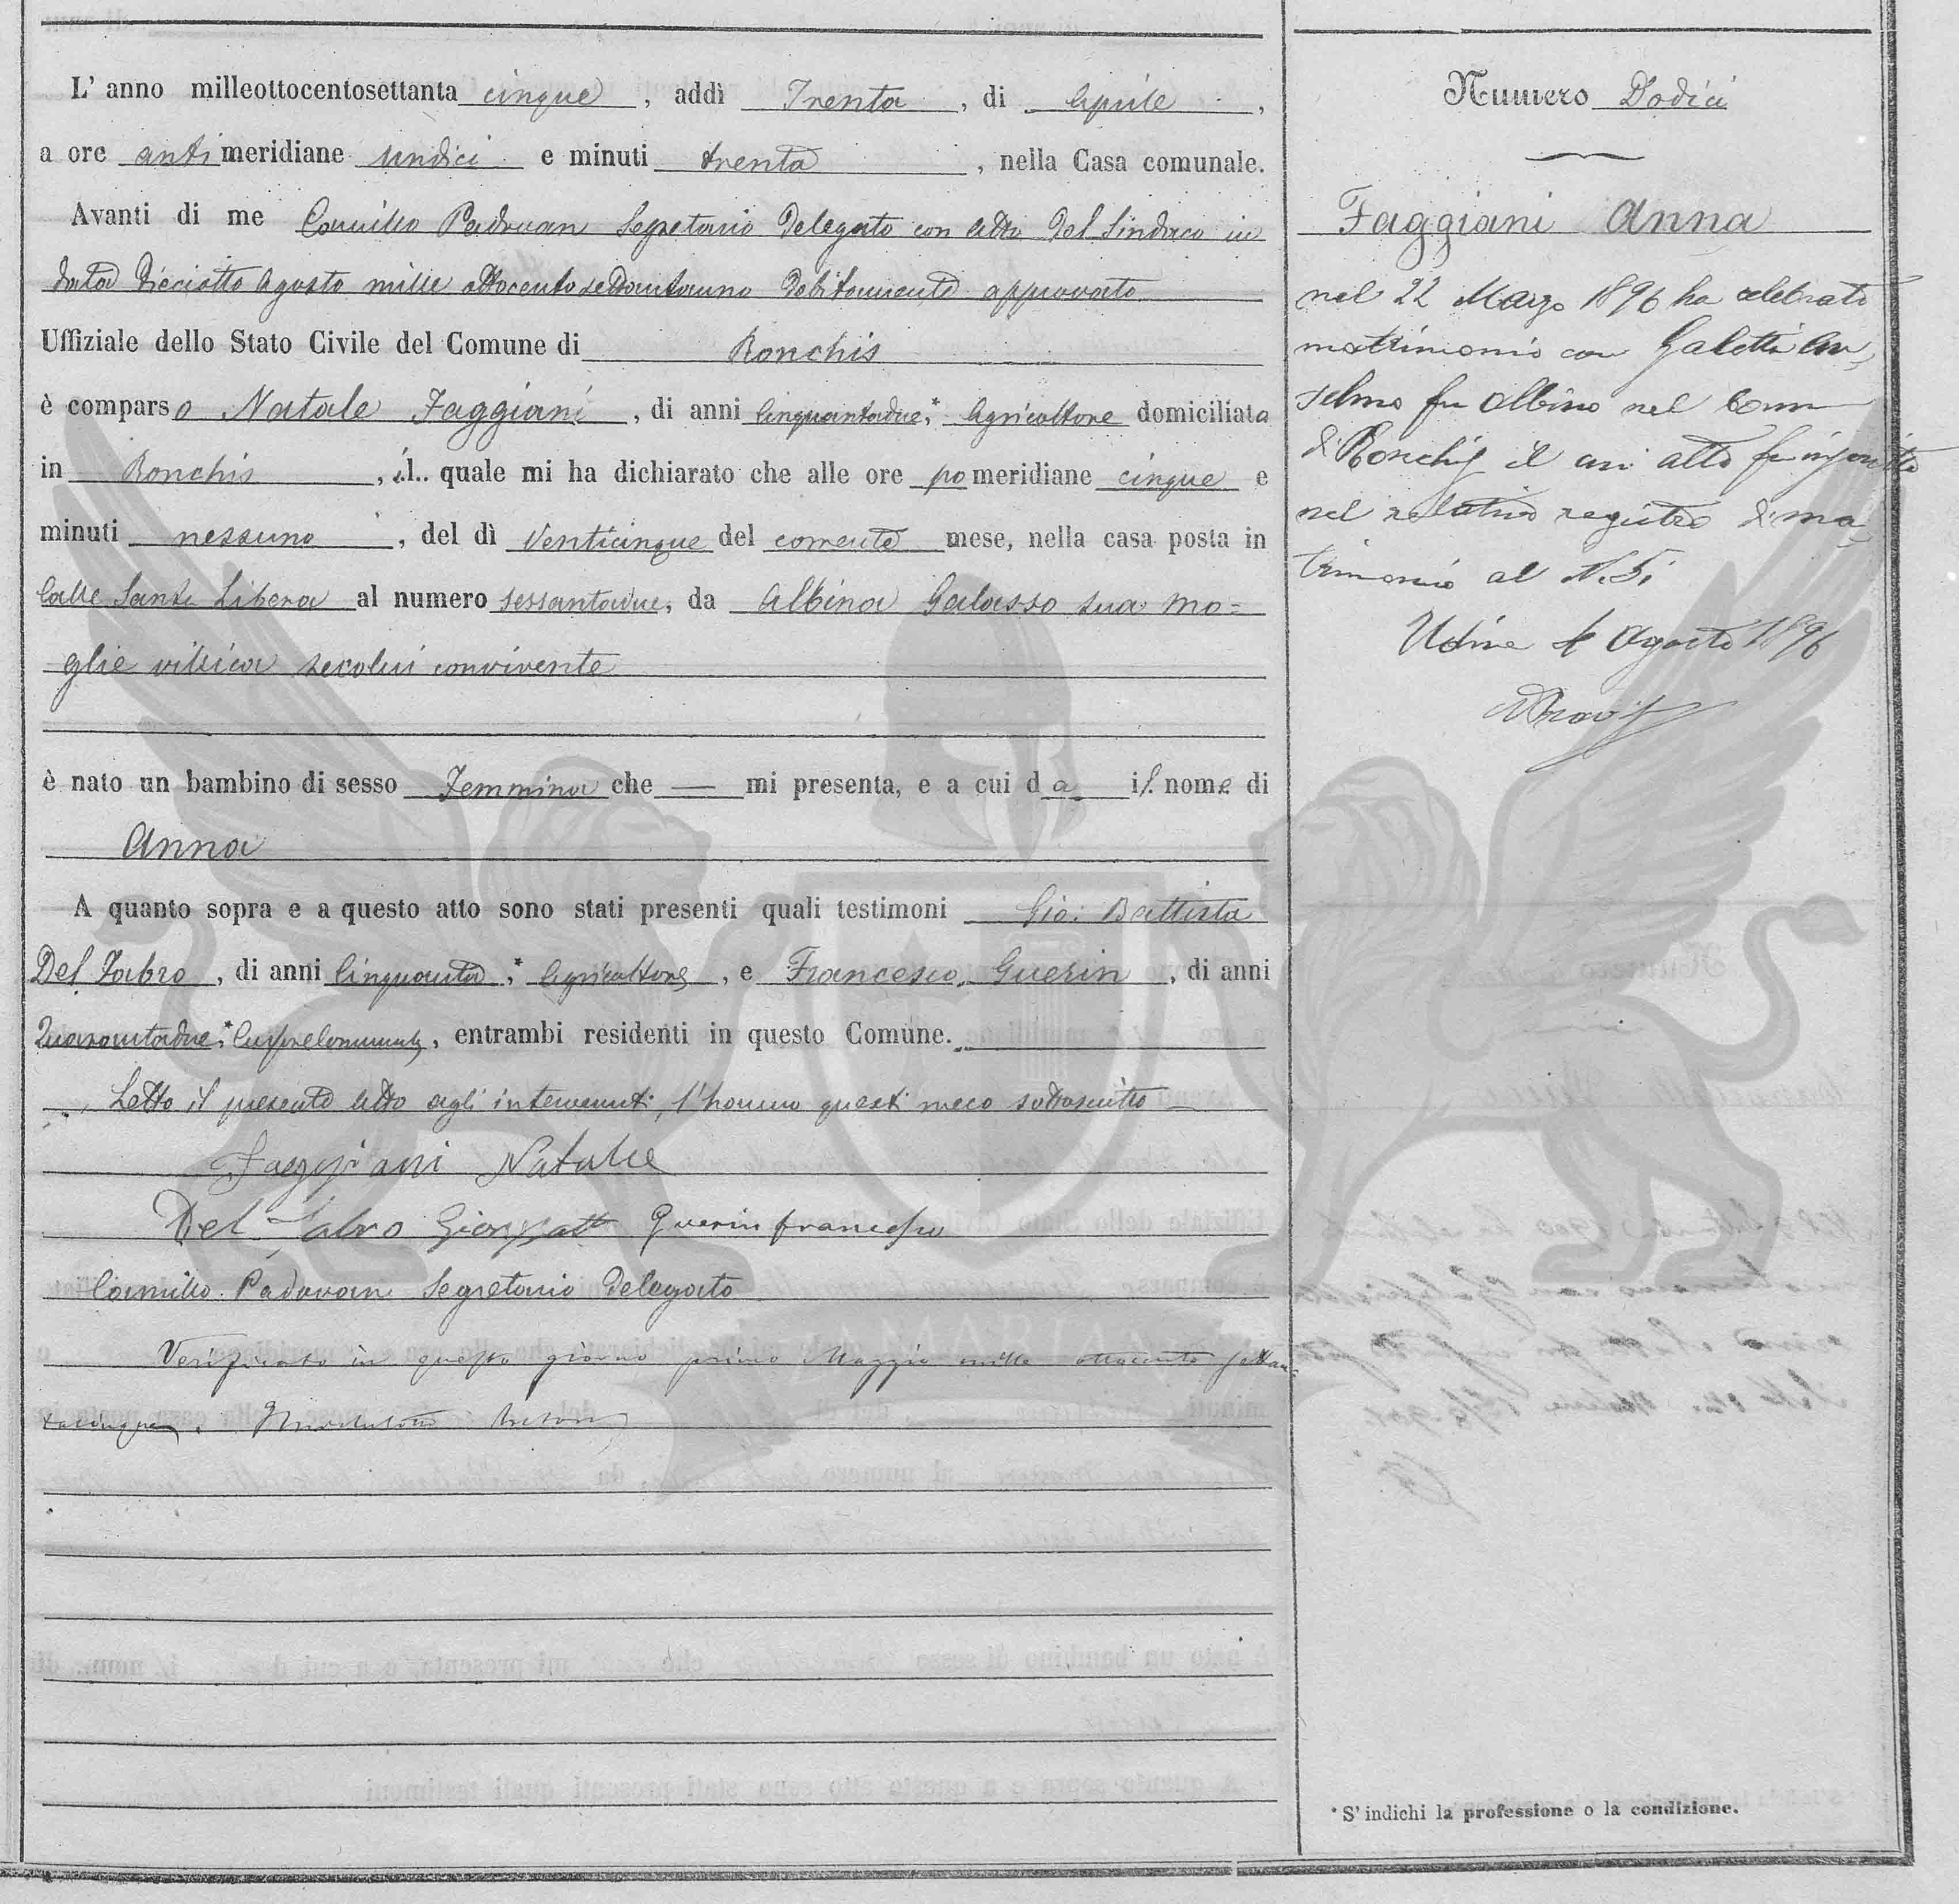 L' anno milleottocentosettanta cinque, addì Trenta, di Aprile,
a ore antimeridiane undici e minuti trenta, nella Casa comunale.
Avanti di me Camillo Padovan Segretario Delegato con Atto del Sindaco in
data dieciotto Agosto mille ottocento settantauno debitamente approvato
Uffiziale dello Stato Civile del Comune di Ronchis
è comparso Natale Faggiani, di anni Cinquantadue,* Agricoltore domiciliato
in Ronchis, il quale mi ha dichiarato che alle ore pomeridiane cinque e
minuti nessuno, del dì Venticinque del corrente mese, nella casa posta in
Calle Santa Libera al numero sessantadue, da Albina Galasso sua mo=
glie villica secolui convivente
è nato un bambino di sesso Femmina che — mi presenta, e a cui da il nome di
Anna
A quanto sopra e a questo atto sono stati presenti quali testimoni Gio: Battista
Del Fabro, di anni Cinquanta,* Agricoltore, e Francesco Guerin, di anni
Quarantadue,* entrambi residenti in questo Comune.
Letto il presente Atto agli intervenuti, l'hanno questi meco sottoscritto
Faggiani Natale
Del Fabro Giovanni Guerin francesco
Camillo Padovan Segretario Delegato
Verificato in questo giorno primo Maggio mille ottocento settan=
tacinque.
Numero Dodici
Faggiani Anna
nel 22 Marzo 1896 ha celebrato
matrimonio con Galetti An=
selmo fu Albino nel Comune
di Ronchis il cui atto fu inscritto
nel relativo registro di ma=
trimonio al N. 5
Udine 4 Agosto 1896
* S' indichi la professione o la condizione.